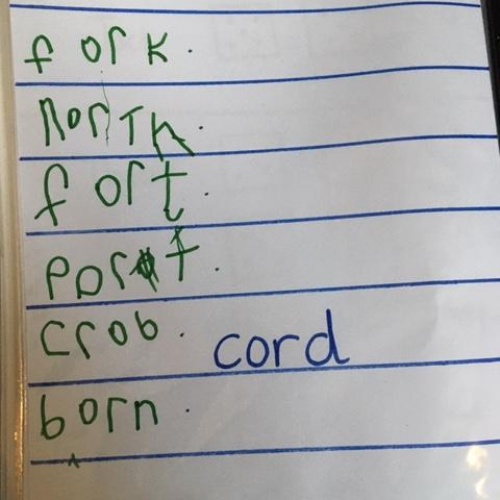 fork.
norTh.
fort.
port.
crob. cord
born.